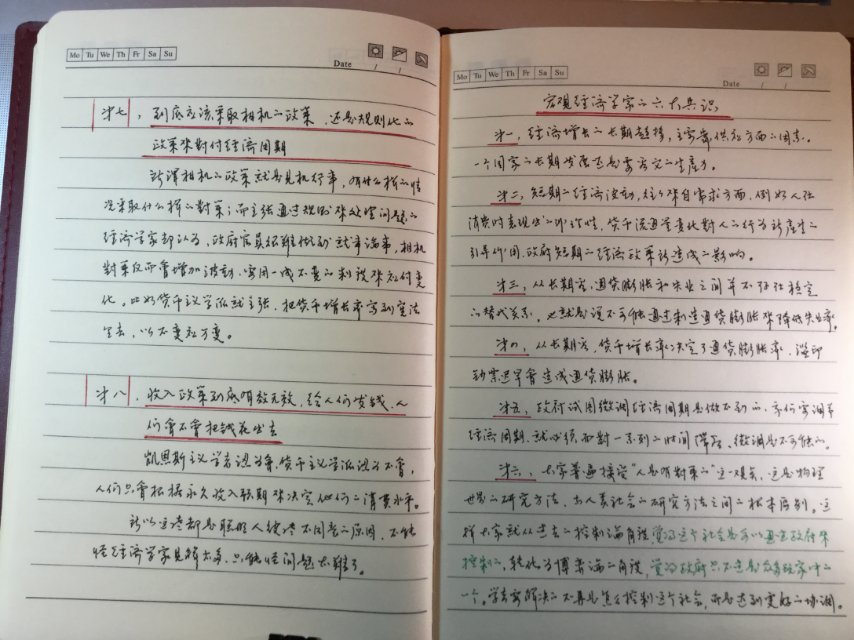 Mo Tu We Th Fr Sa Su
Date / /
第七，到底应该采取相机的政策，还是规则化的
政策来对付经济周期
所谓相机的政策就是见机行事，有什么样的情
况采取什么样的对策；而主张通过规则来处理问题的
经济学家却认为，政府官员很难做到就事论事，相机
对策反而会增加波动，要用一成不变的制度来应付变
化。比如货币主义学派就主张，把货币增长率写到宪法
里去，以不变应万变。
第八，收入政策到底有效无效，给人们发钱，人
们会不会把钱花出去
凯恩斯主义学者认为会，货币主义学派认为不会，
人们只会根据永久收入预期来决定他们的消费水平。
所以这考都是聪明人读考不同意的原因，不能
怪经济学家见解太多，只能怪问题太难了。
Mo Tu We Th Fr Sa Su
Date / /
宏观经济学家的六大共识
第一，经济增长的长期趋势，主要靠供应方面的因素。
一个国家的长期发展还是要靠它的生产力。
第二，短期的经济波动，往往来自需求方面，例如人在
消费时表现出的即时性，货币流通量变化对人的行为所产生的
引导作用，政府短期的经济政策所造成的影响。
第三，从长期看，通货膨胀和失业之间并不存在稳定
的替代关系，也就是说不可能通过制造通货膨胀来降低失业率。
第四，从长期看，货币增长率决定了通货膨胀率，滥印
钞票迟早会造成通货膨胀。
第五，政府试图微调经济周期是做不到的，市何要调节
经济周期，就必须面对一系列的时间障碍，微调是不可能的。
第六，大家普遍接受“人是有对策的”这一观点，这是物理
世界的研究方法，与人类社会的研究方法之间的根本区别。这
样大家就从过去的控制论角度，觉得这个社会是可以通过政府来
控制的，转化为博弈论的角度，觉得政府只不过是众多玩家中的
一个，学者要解决的不再是怎么控制这个社会，而是达到更好的协调。